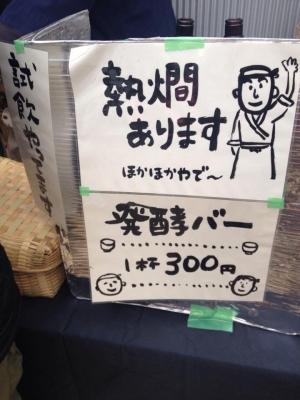 試飲やってます
熱燗
あります
ほかほかやで〜
発酵バー
1杯300円